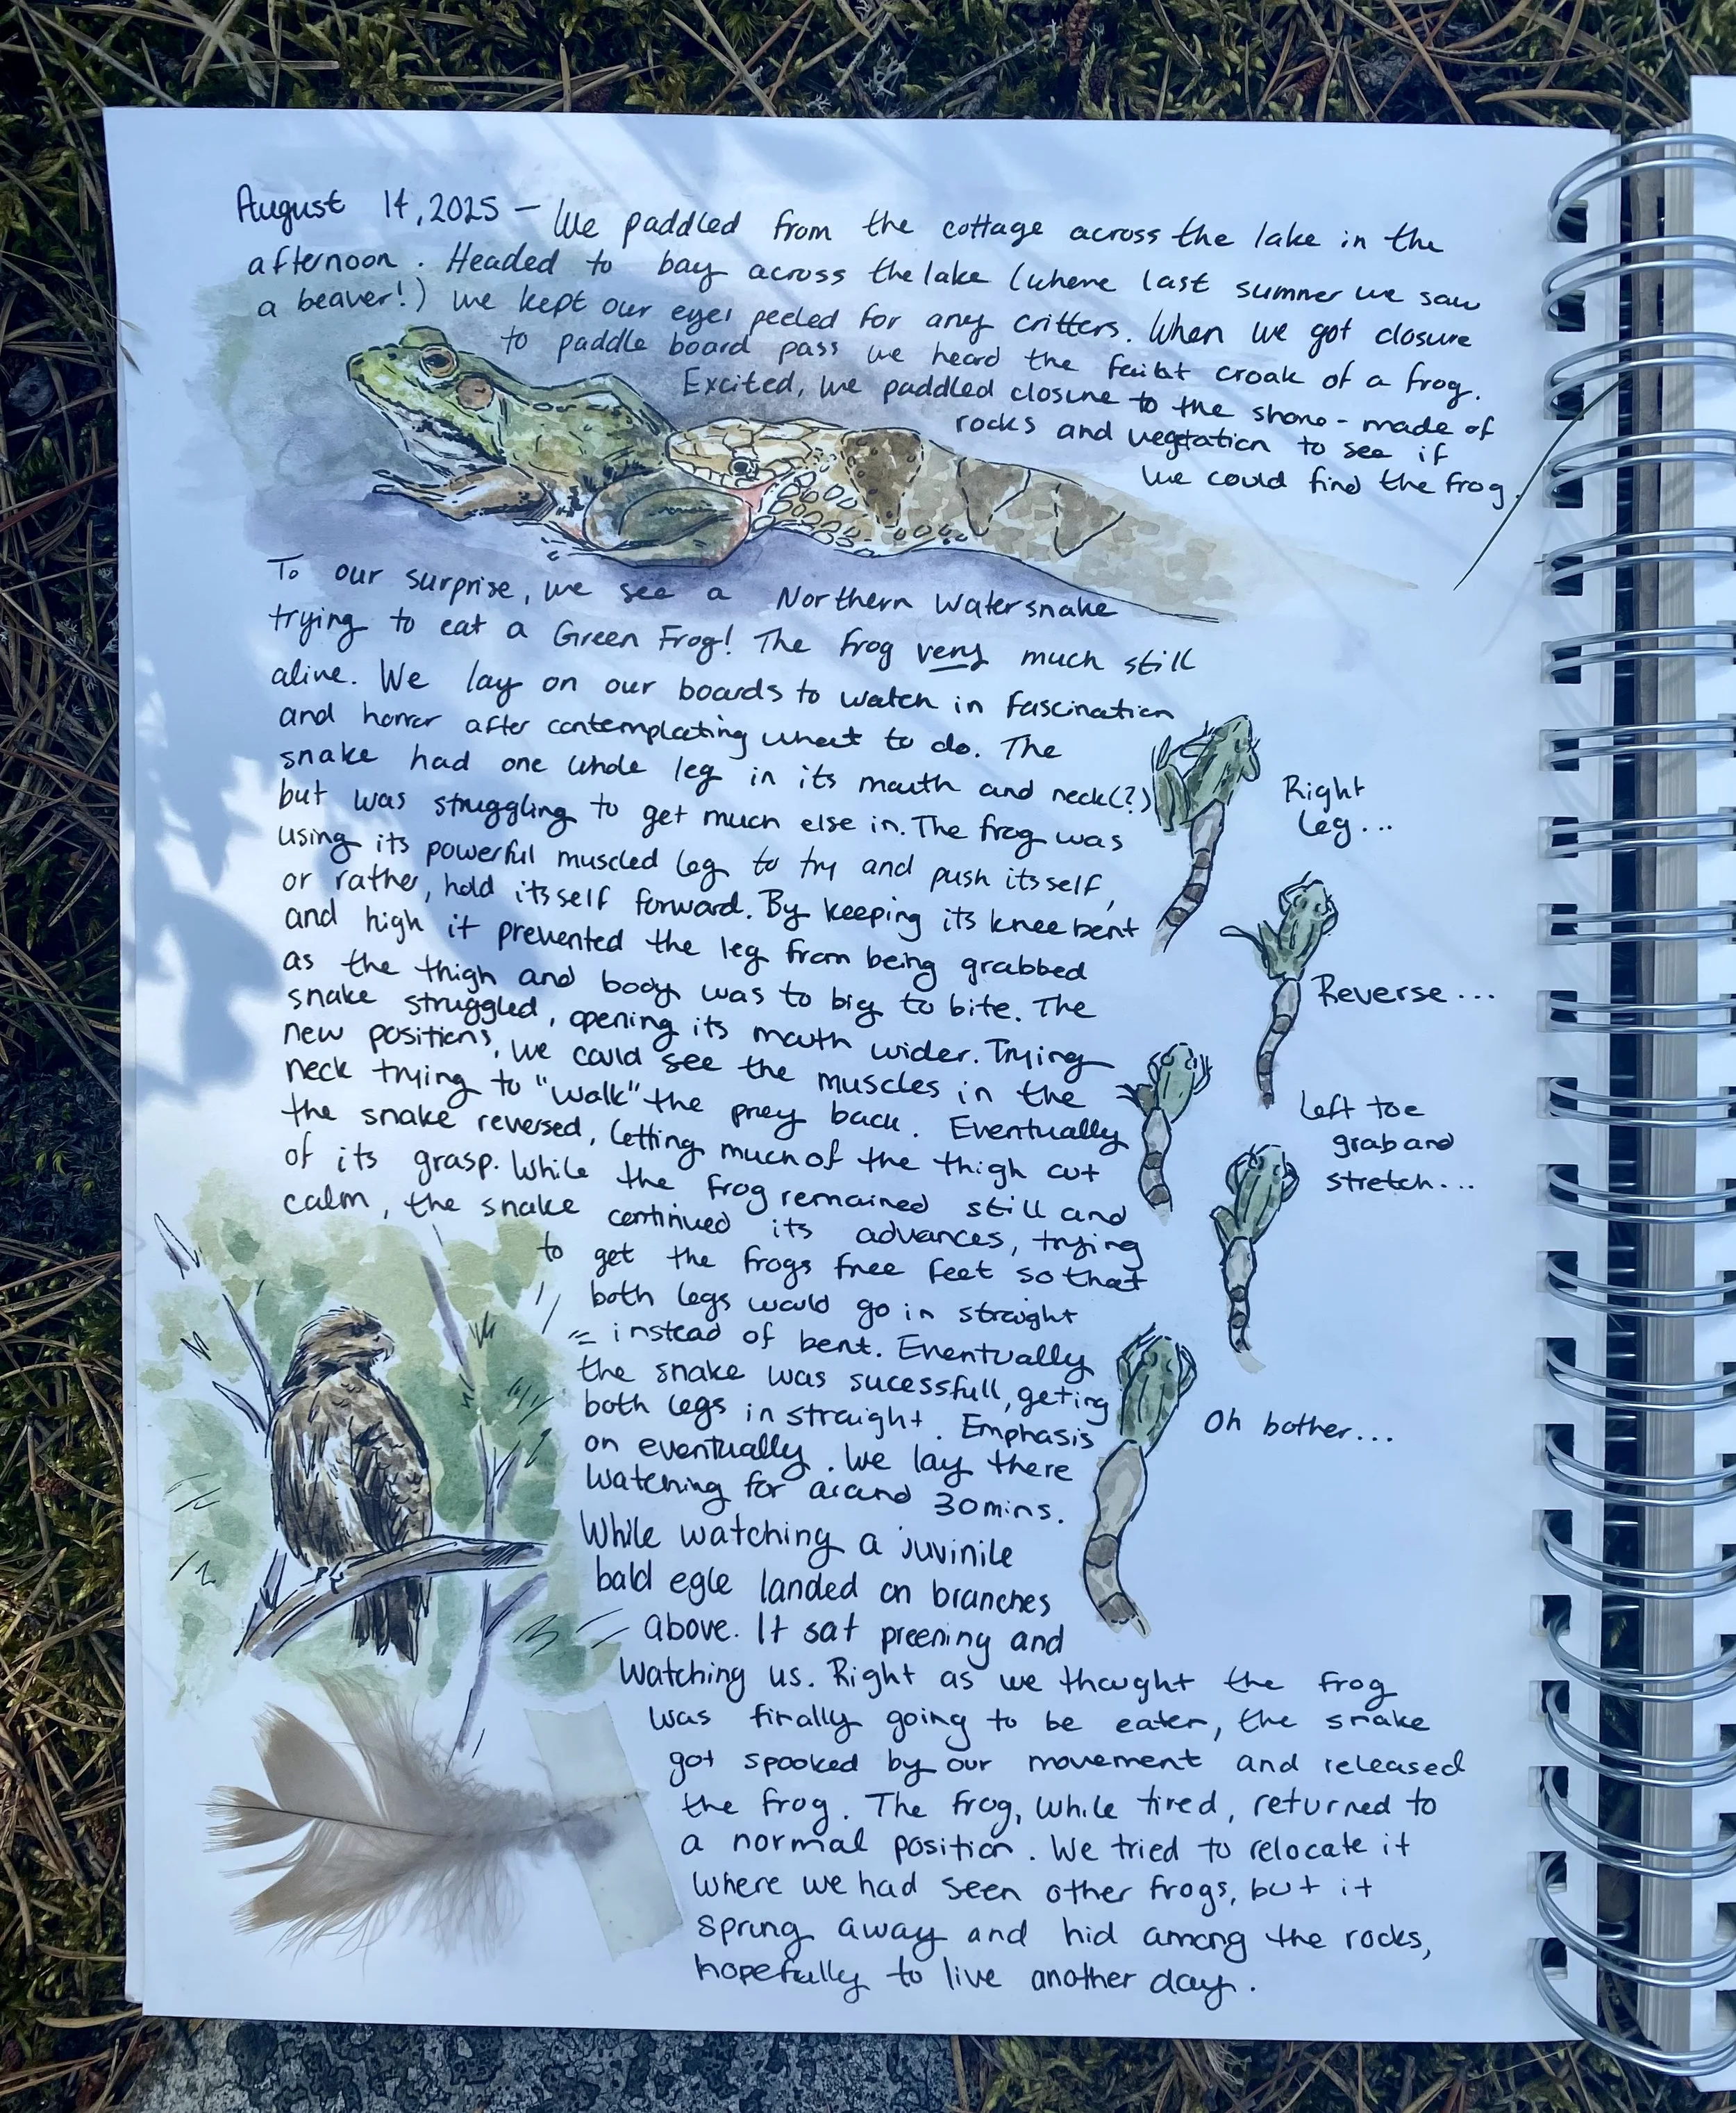 August 14, 2025 – We paddled from the cottage across the lake in the
afternoon. Headed to bay across the lake (where last summer we saw
a beaver!) we kept our eyes peeled for any critters. When we got closure
to paddle board pass we heard the faint croak of a frog.
Excited, we paddled closure to the shore - made of
rocks and vegtation to see if
we could find the frog.
To our surprise, we see a Northern Watersnake
trying to eat a Green Frog! The frog very much still
alive. We lay on our boards to watch in fascination
and horror after contemplating what to do. The
snake had one whole leg in its mouth and neck(?)
but was struggling to get much else in. The frog was
using its powerful muscled leg to try and push itsself,
or rather, hold itsself forward. By keeping its knee bent
and high it prevented the leg from being grabbed
as the thigh and body was to big to bite. The
snake struggled, opening its mouth wider. Trying
new positions, we could see the muscles in the
neck trying to "walk" the prey back. Eventually
the snake reversed, letting much of the thigh out
of its grasp. While the frog remained still and
calm, the snake continued its advances, trying
to get the frogs free feet so that
both legs would go in straight
instead of bent. Eventually
the snake was sucessfull, geting
both legs in straight. Emphasis
on eventually. We lay there
watching for around 30mins.
While watching a juvinile
bald egle landed on branches
above. It sat preening and
watching us. Right as we thought the frog
was finally going to be eaten, the snake
got spooked by our movement and released
the frog. The frog, while tired, returned to
a normal position. We tried to relocate it
where we had seen other frogs, but it
sprung away and hid among the rocks,
hopefully to live another day.
Right
leg...
Reverse...
Left toe
grab and
stretch...
Oh bother...